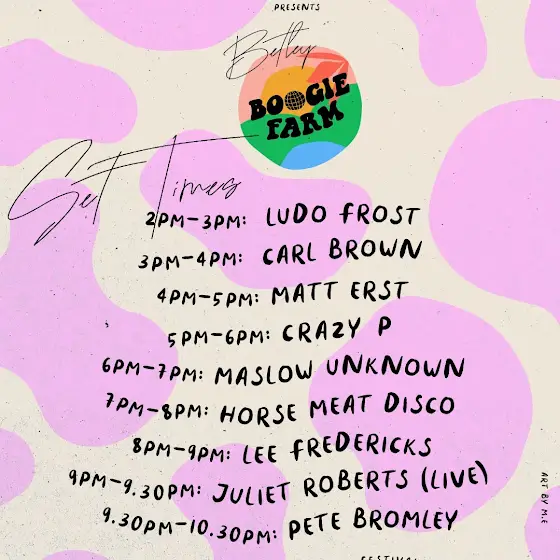 PRESENTS
Betley
BOOGIE
FARM
Set Times
2PM-3PM: LUDO FROST
3PM-4PM: CARL BROWN
4PM-5PM: MATT ERST
5PM-6PM: CRAZY P
6PM-7PM: MASLOW UNKNOWN
7PM-8PM: HORSE MEAT DISCO
8PM-9PM: LEE FREDERICKS
9PM-9.30PM: JULIET ROBERTS (LIVE)
9.30PM-10.30PM: PETE BROMLEY
ART BY M.E
FESTIVAL